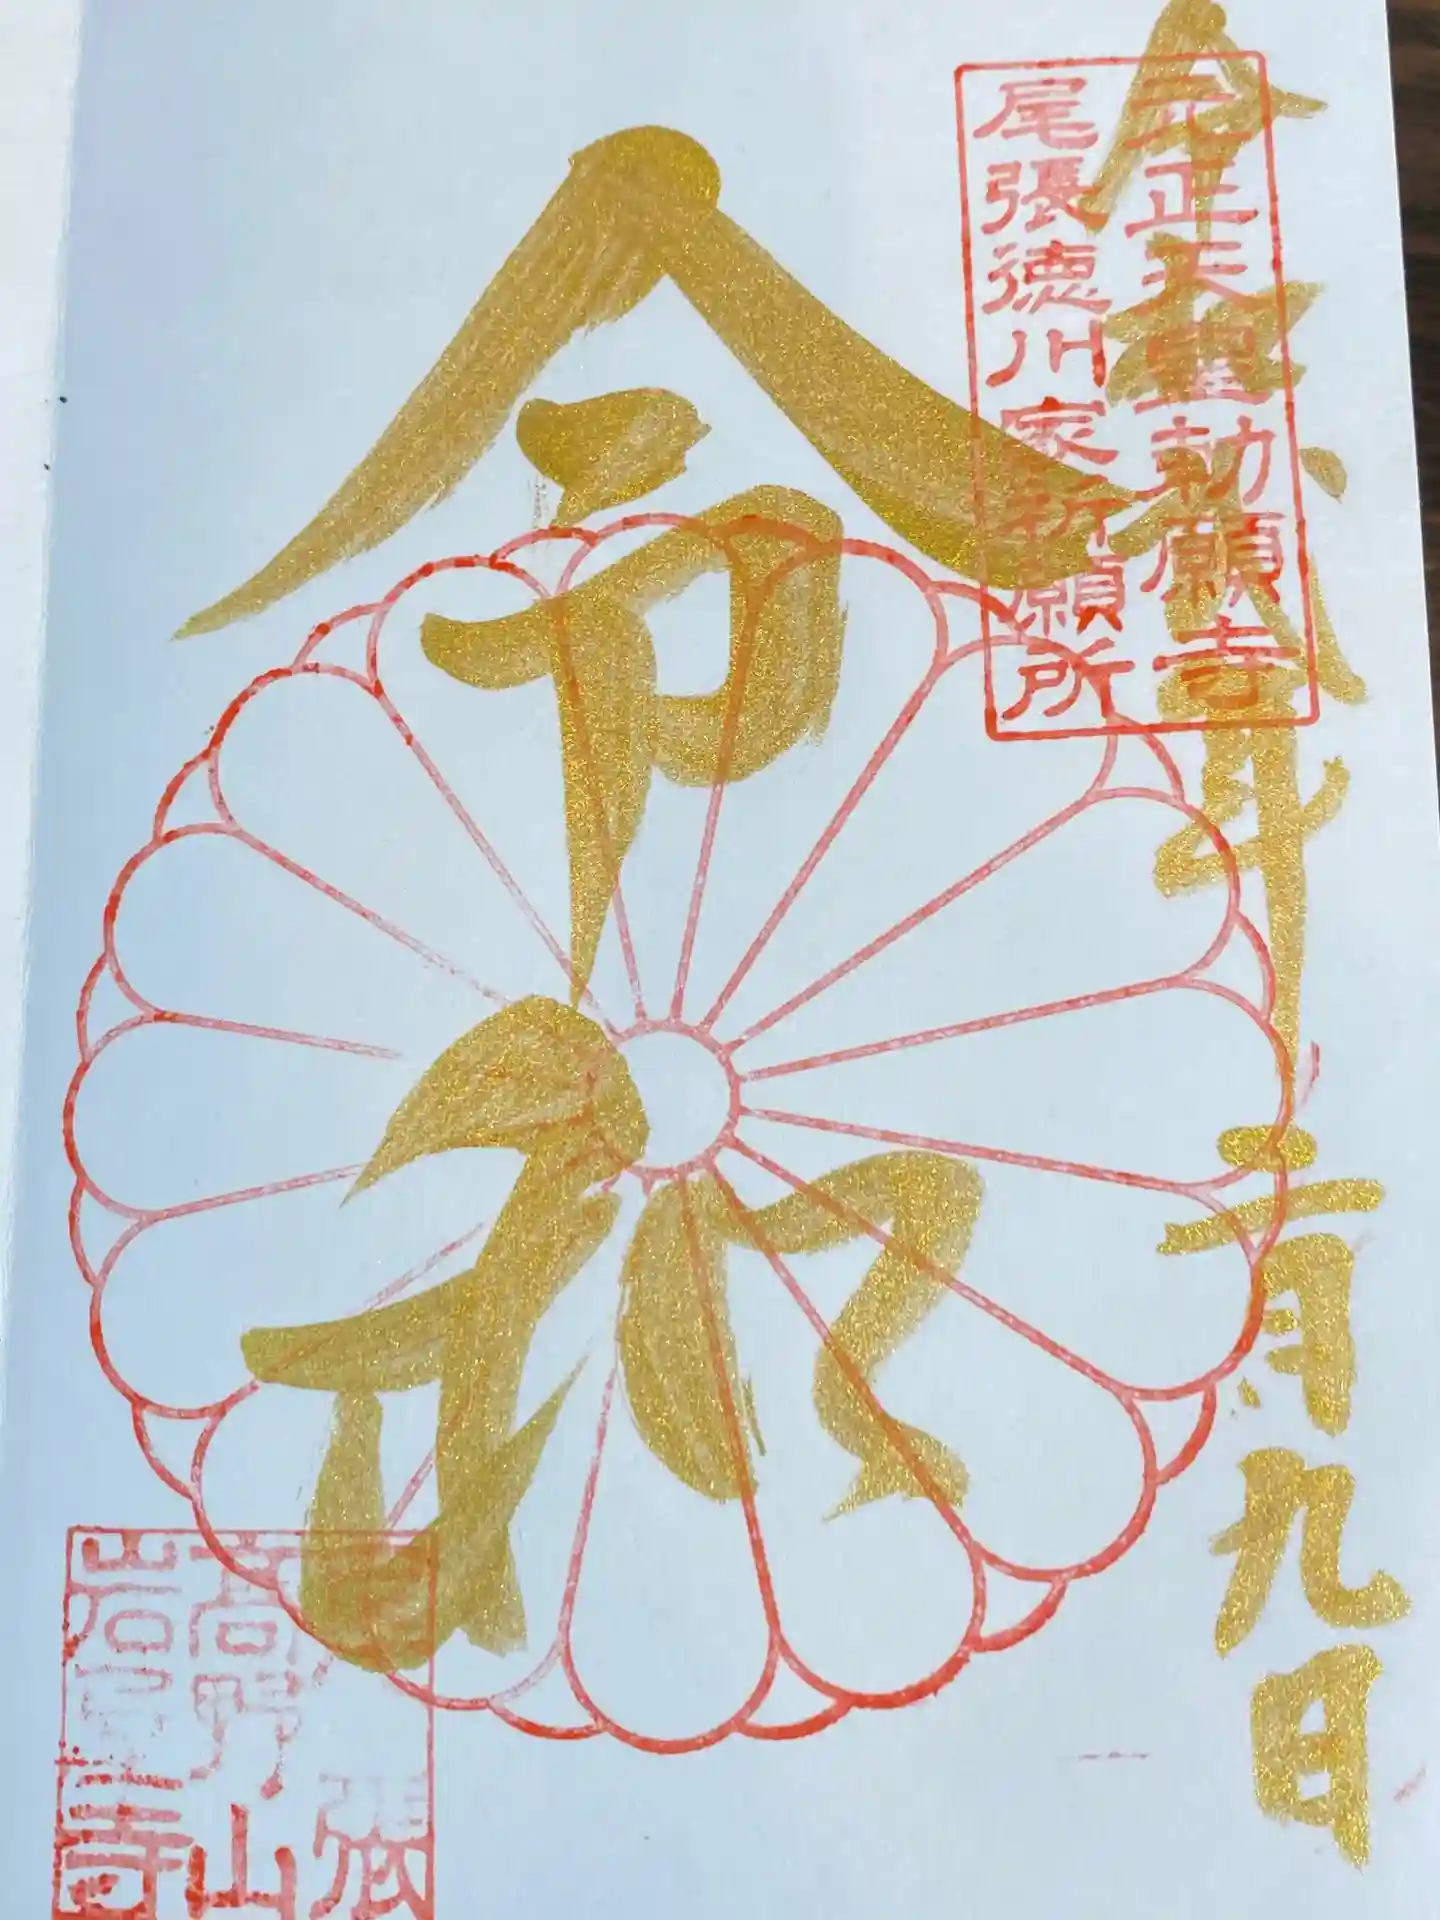 令和弐年
二月九日
元正天皇勅願寺
尾張徳川家祈願所
令和
尾張
高野山
岩屋寺